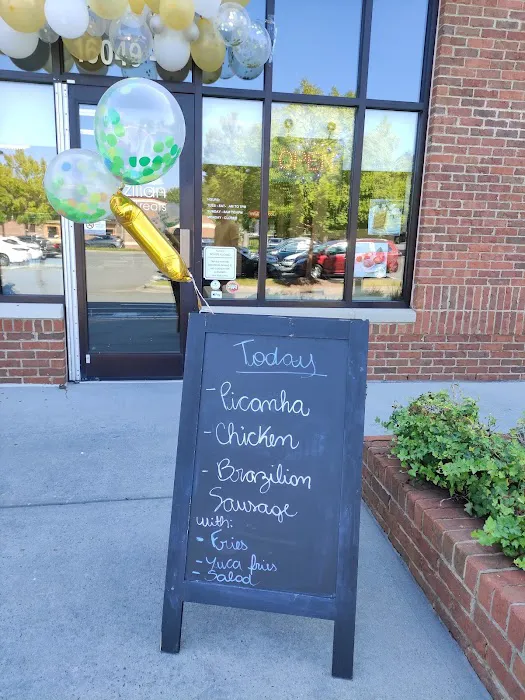 6049
OPEN
Today
- Picanha
- Chicken
- Brazilian
Sausage
with:
- Fries
- Yuca fries
- Salad